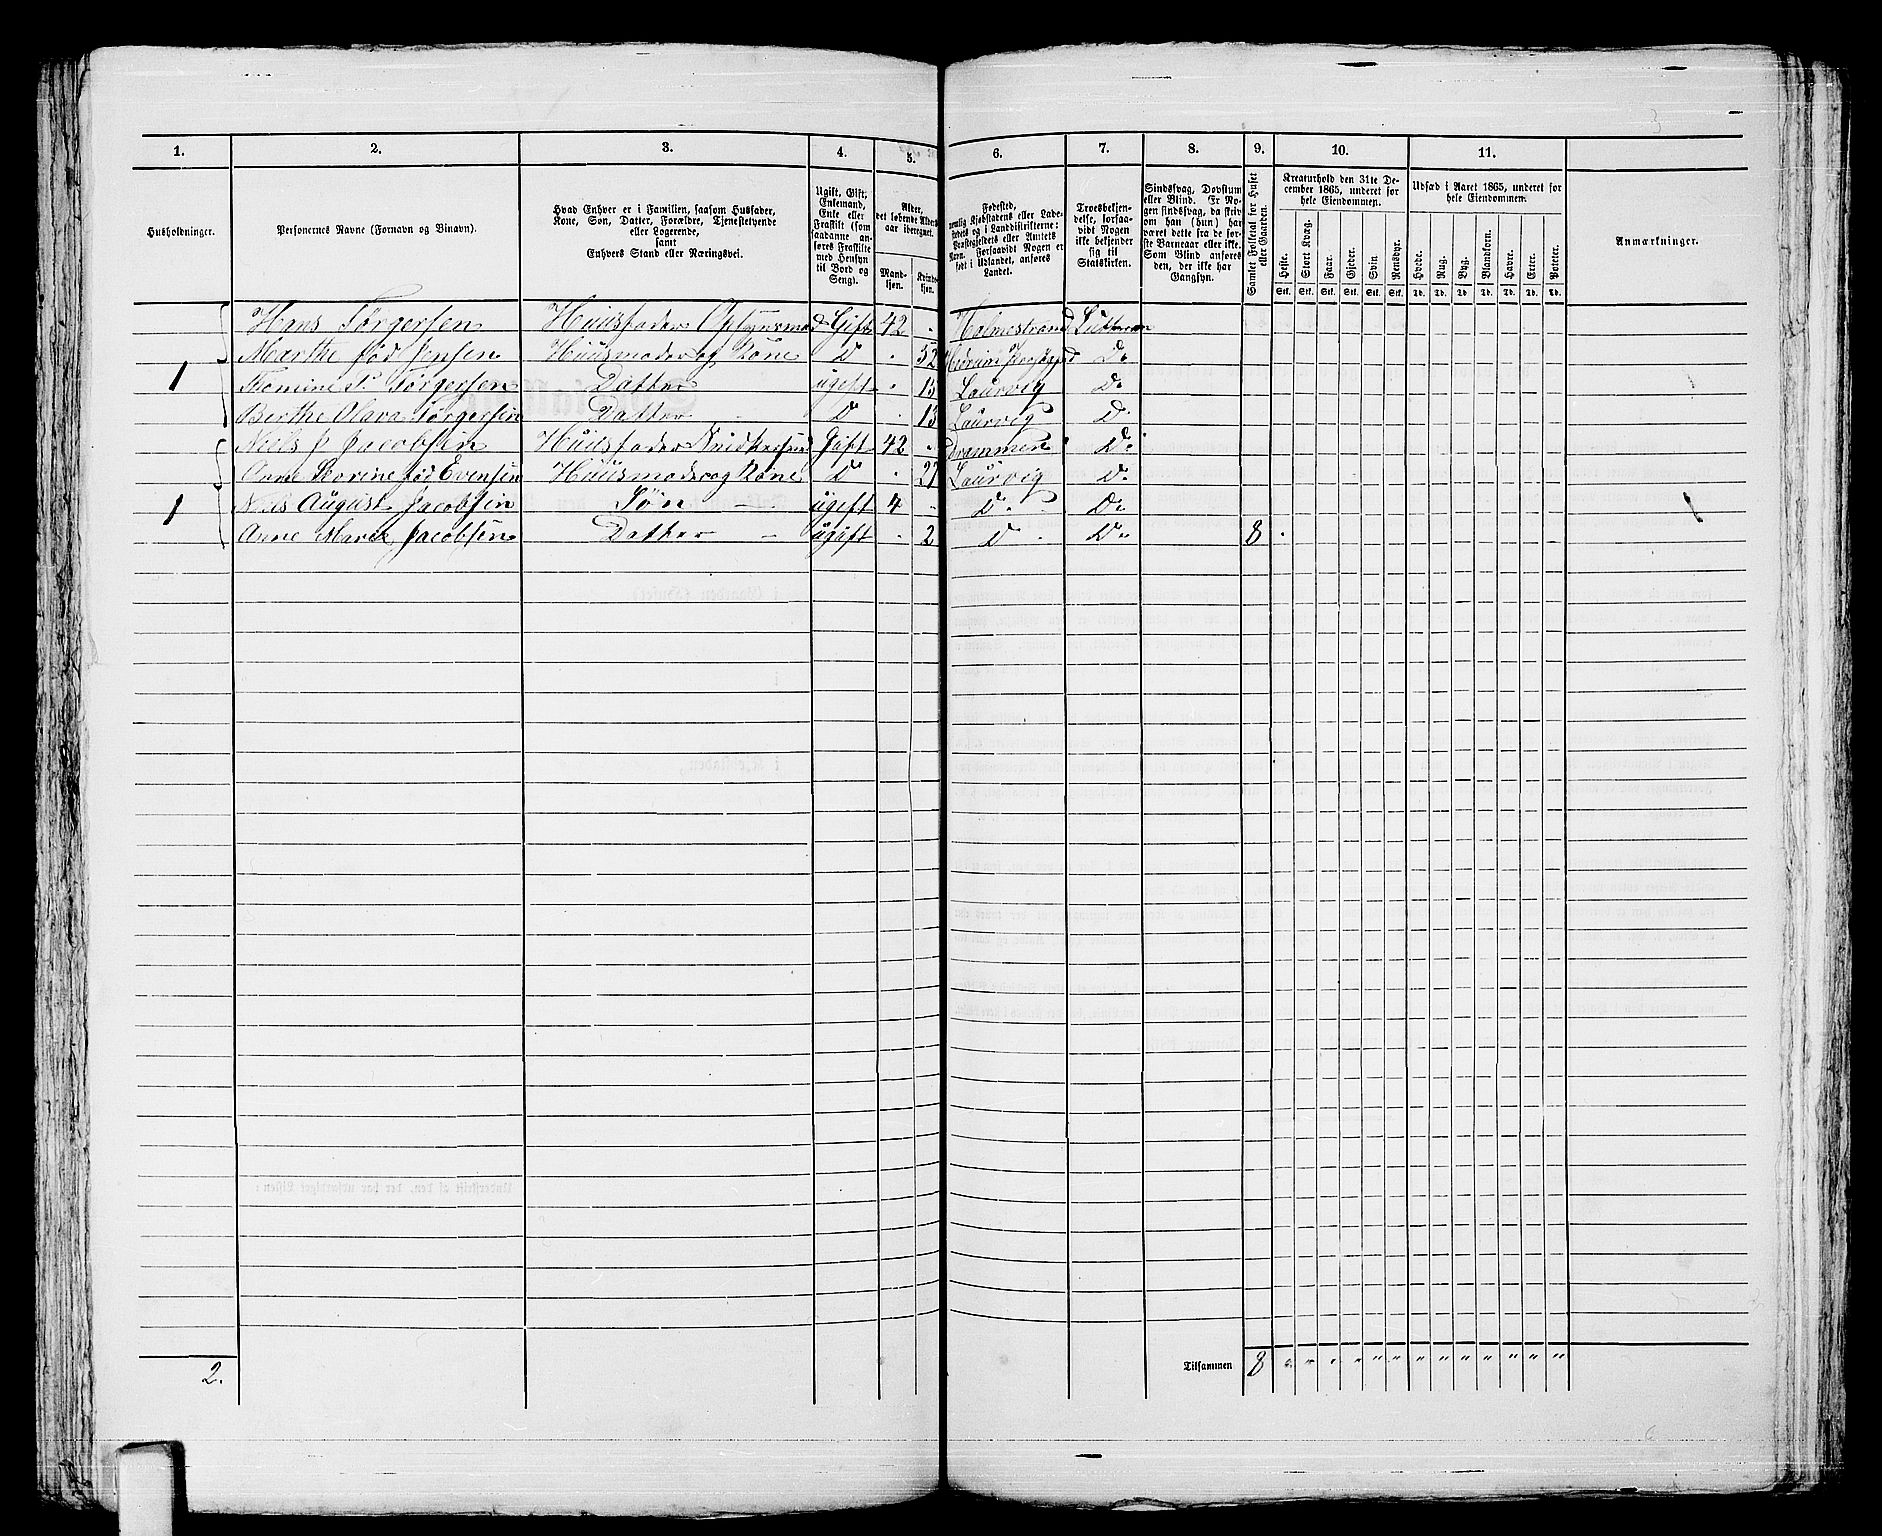 1. 2. 3. 4. 5. 6. 7. 8. 9. 10. 11.
Husholdninger.
Personernes Navne (Fornavn og Binavn).
Hvad Enhver er i Familien, saasom Husfader,
Kone, Søn, Datter, Forældre, Tjenestetyende
eller Logerende,
samt
Enhvers Stand eller Næringsvei.
Ugift, Gift,
Enkemand,
Enke eller
Fraskilt (som
saadanne an-
føres Fraskilte
med Hensyn
til Bord og
Seng).
Alder,
det løbende Alders-
aar iberegnet.
Mand-
kjøn.
Kvinde-
kjøn.
Fødested,
nemlig Kjøbstadens eller Lade-
stedets og i Landdistrikterne:
Præstegjeldets eller Amtets
Navn. Forsaavidt Nogen er
født i Udlandet, anføres
Landet.
Troesbekjen-
delse, forsaa-
vidt Nogen
ikke bekjender
sig til
Statskirken.
Sindssvag, Døvstum
eller Blind. Er No-
gen sindssvag, da skriv
om han (hun) har
været dette fra de før-
ste Barneaar eller ikke.
Som Blind anføres
den, der ikke har
Gangsyn.
Samlet Folketal for Huset
eller Gaarden.
Kreaturhold den 31te De-
cember 1865, underet for
hele Eiendommen.
Heste. Stort Kvæg. Faar. Gjeder. Svin Rensdyr.
Stk. Stk. Stk. Stk. Stk. Stk.
Udsæd i Aaret 1865, underet for
hele Eiendommen.
Hvede. Rug. Byg. Blandkorn. Havre. Erter. Poteter.
Td. Td. Td Td. Td. Td. Td.
Anmærkninger.
Hans Tørgersen Huusfader Gift 42 Holmestrand
Marthe fød Jensen Huusmoder og Kone Do 52 Do
1 Tørgersen Datter ugift 15 Laurvig Do
Berthe Olava Tørgersen Datter Do 13 Laurvig Do
Niels J Jacobsen Huusfader Gift 42 Drammen Do
fød Evensen Huusmoder og Kone Do 27 Laurvig Do
1 Niels August Jacobsen Søn ugift 4 Do Do
Anne Marie Jacobsen Datter ugift 2 Do Do 8
2. Tilsammen 8 " " " " " " " " " " " " "